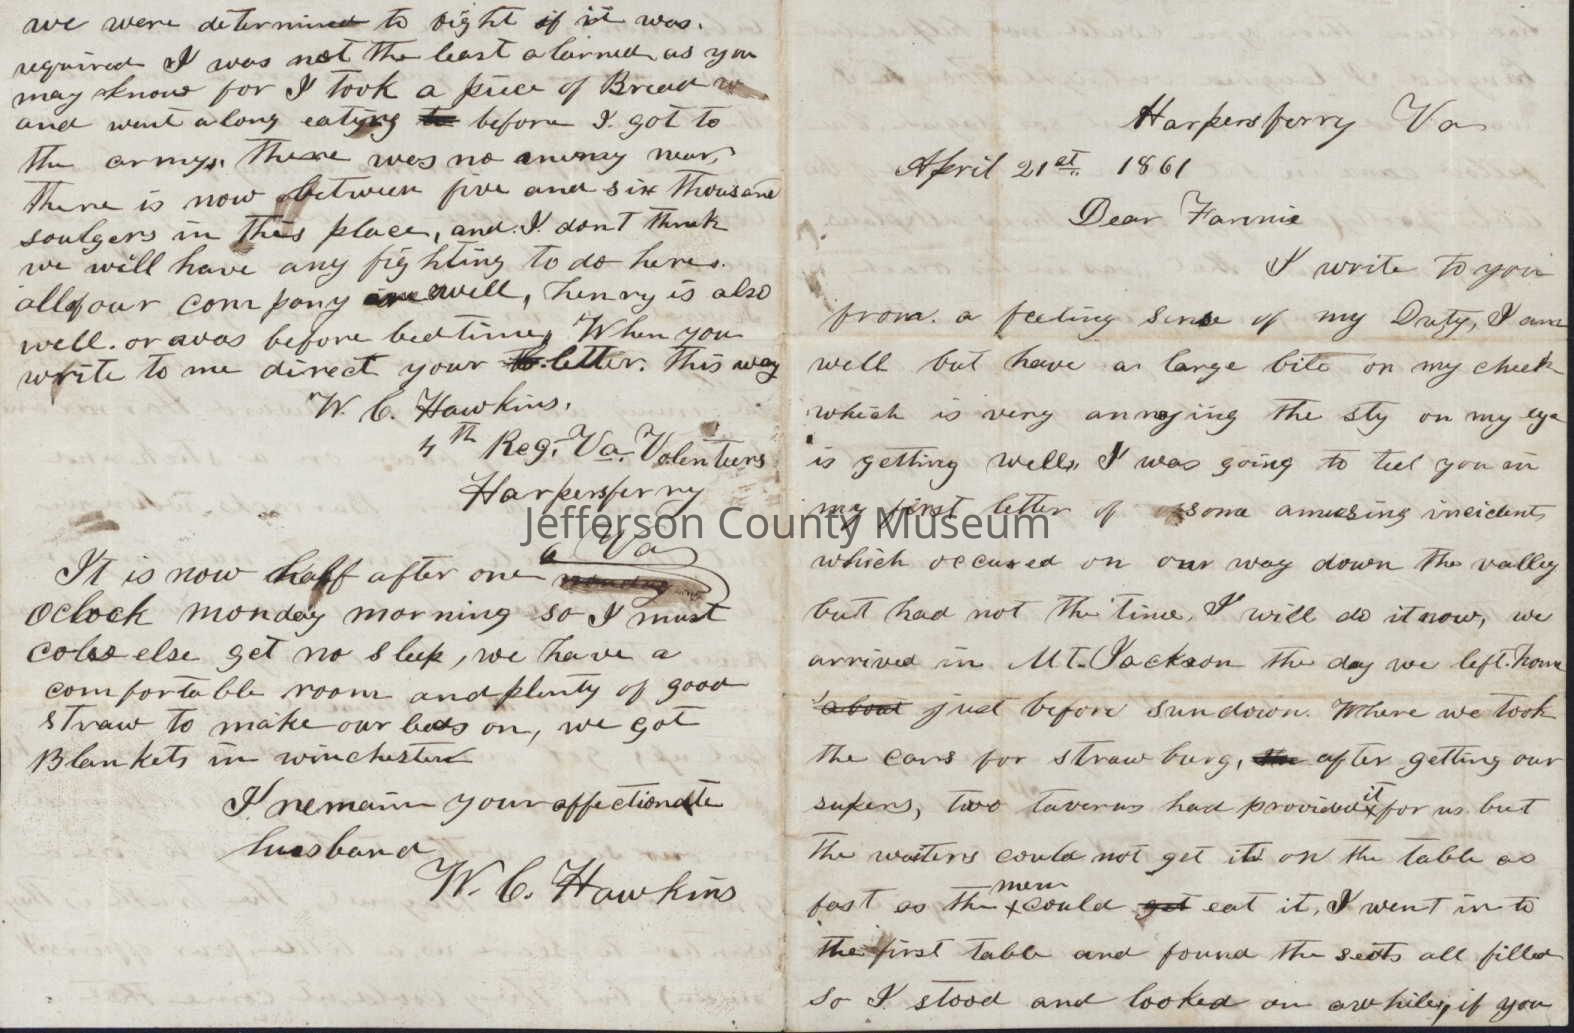 we were determined to right if it was.
required I was not the least alarmed as you
may know for I took a piece of Bread
and went along eating to before I got to
the army. There was no enemy near,
there is now between five and six thousand
soulgers in this place, and I dont think
we will have any fighting to do here.
all of our company are well, henry is also
well. or was before bedtime, When you
write to me direct your to letter. This way
W. C. Hawkins.
4th Reg. Va. Volenteers
Harpersferry
Va
It is now half after one monday
Oclock monday morning so I must
close else get no sleep, we have a
comfortable room and plenty of good
straw to make our beds on, we got
Blankets in winchester
I remain your affectionate
husband
W. C. Hawkins
Harpersferry Va
April 21st 1861
Dear Fannie
I write to you
from a feeling sense of my Duty, I am
well but have a large bile on my cheek
which is very annoying the sty on my eye
is getting well, I was going to tell you in
my first letter of some amusing incidents
which occured on our way down the valley
but had not the time, I will do it now, we
arrived in Mt. Jackson the day we left home
about just before sundown. Where we took
the cars for strawburg, after getting our
supers, two taverns had provided it for us but
the waiters could not get it on the table as
fast as the men could get eat it, I went in to
the first table and found the seats all filled
so I stood and looked on awhile, if you
Jefferson County Museum